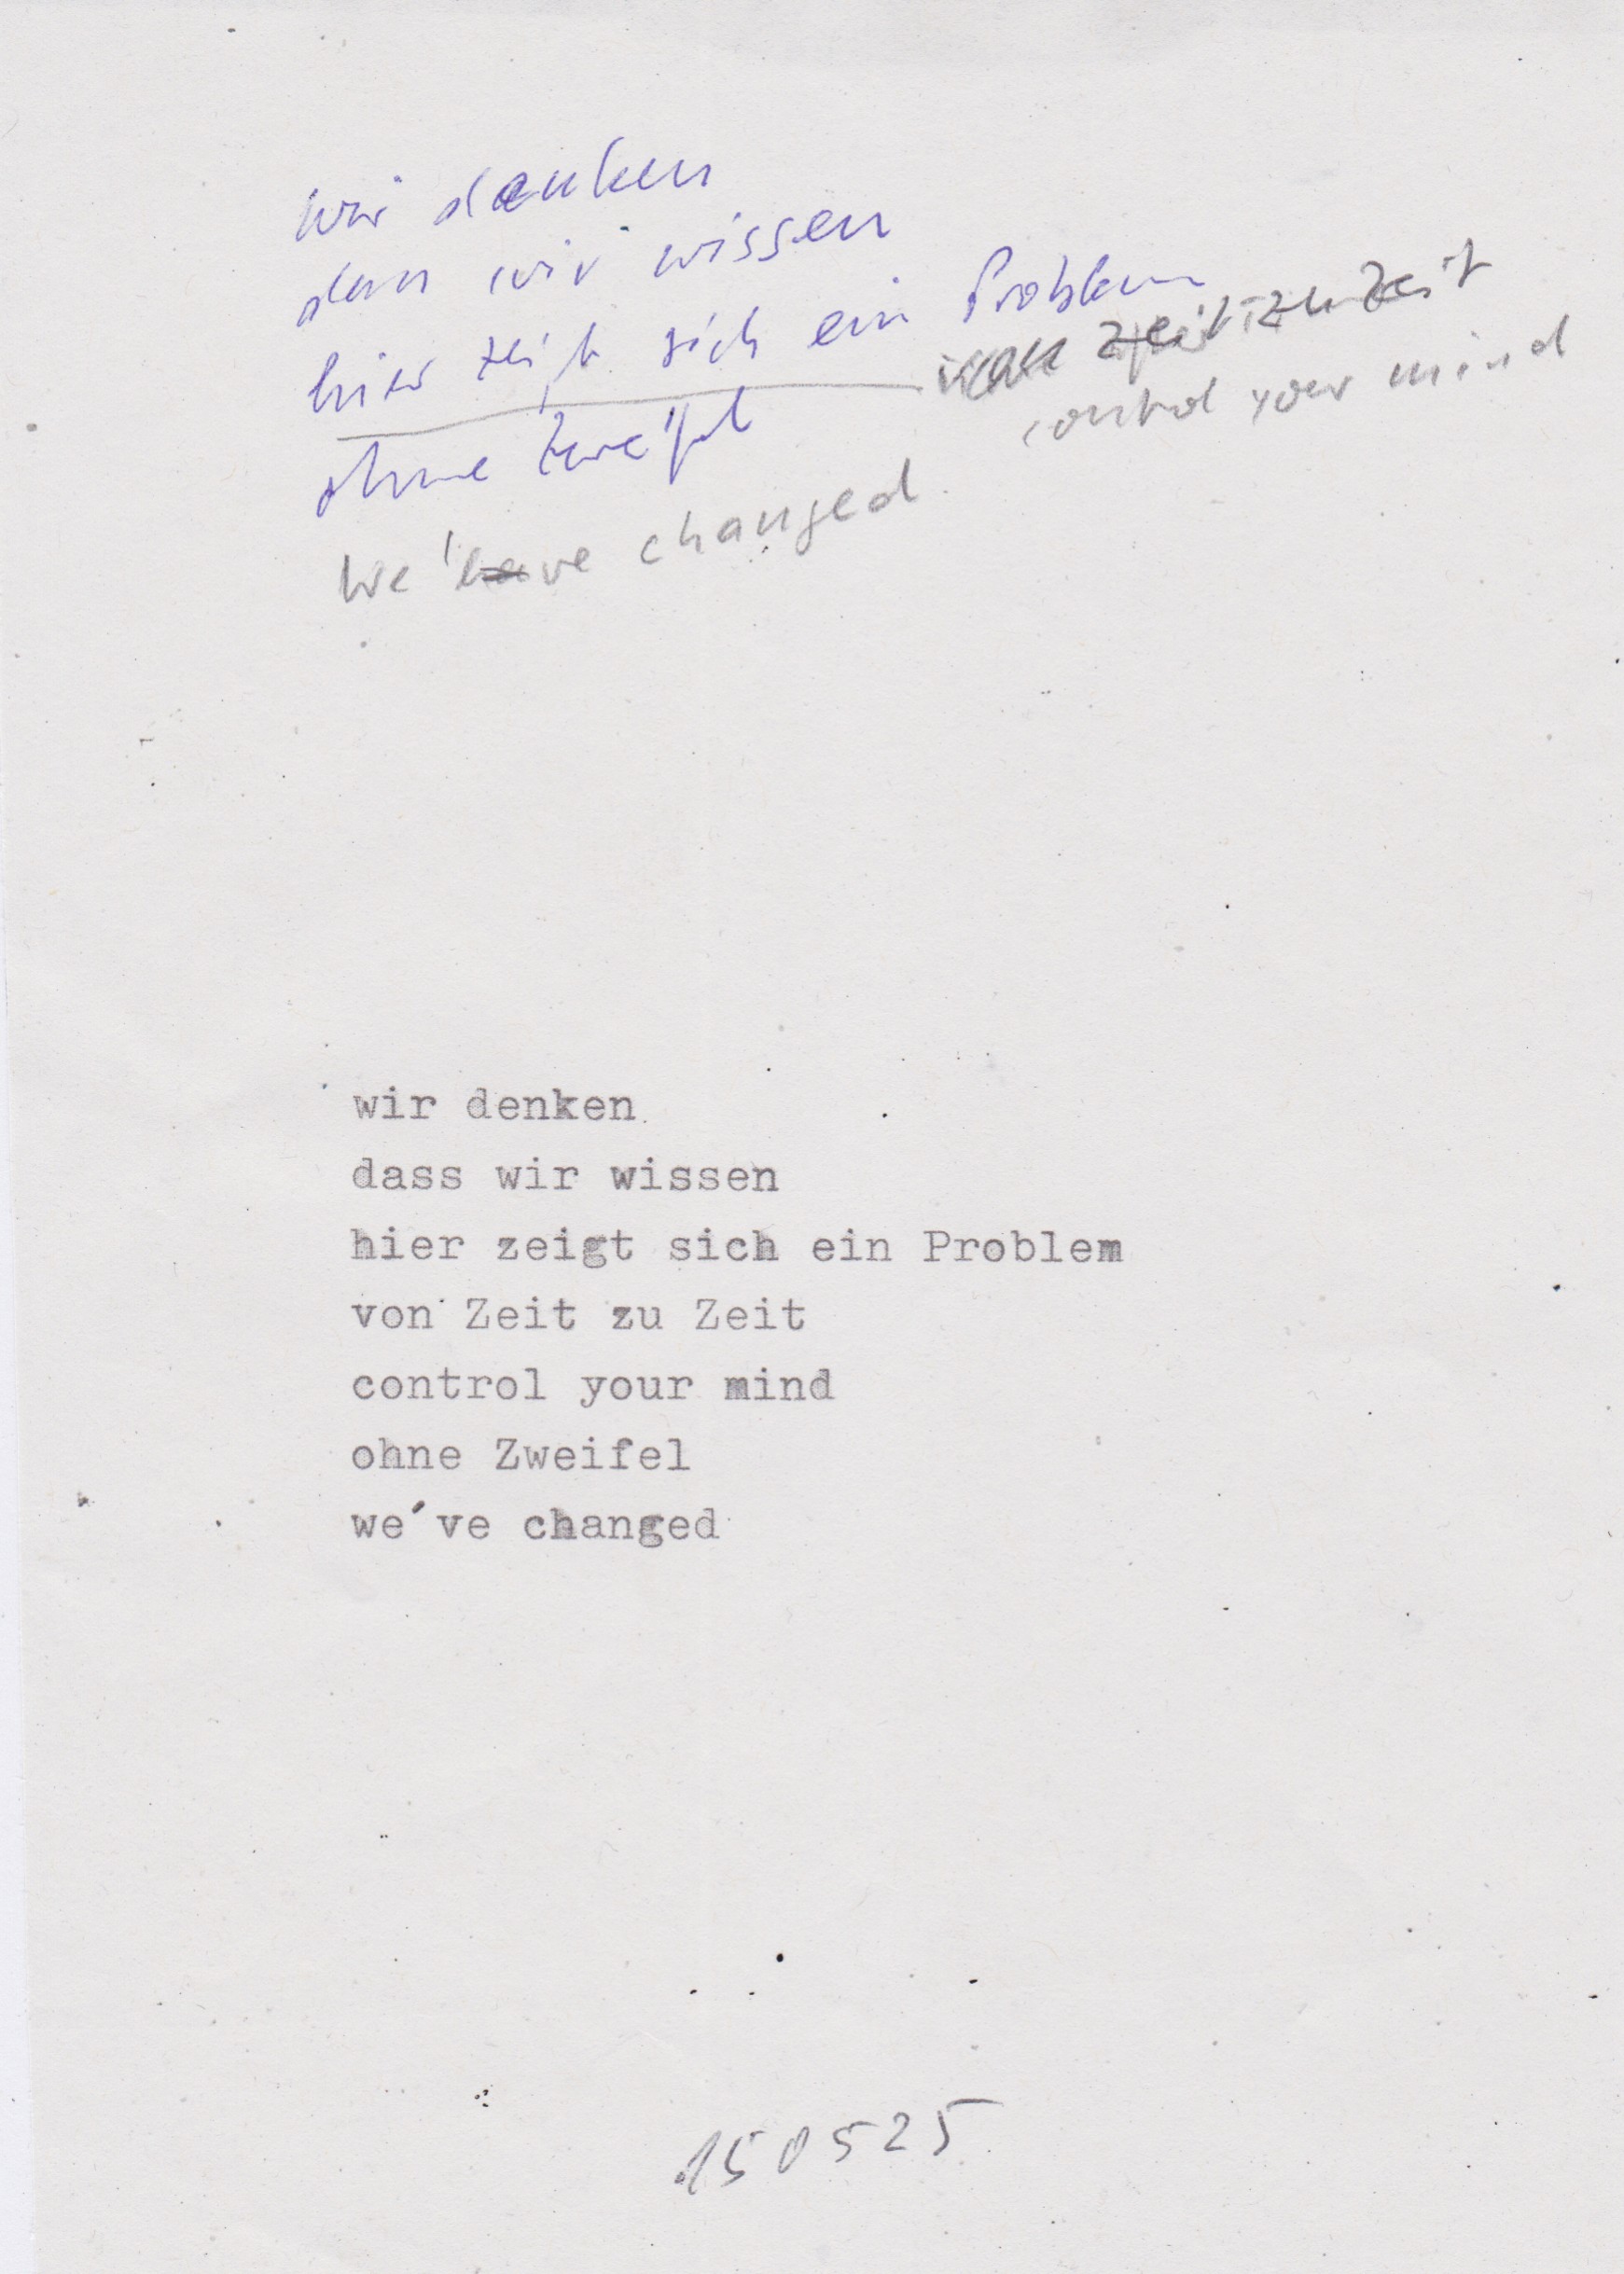 wir denken
dass wir wissen
hier zeigt sich ein Problem
von Zeit zu Zeit
control your mind
ohne Zweifel
We've changed
wir denken
dass wir wissen
hier zeigt sich ein Problem
von Zeit zu Zeit
control your mind
ohne Zweifel
we´ve changed
150525